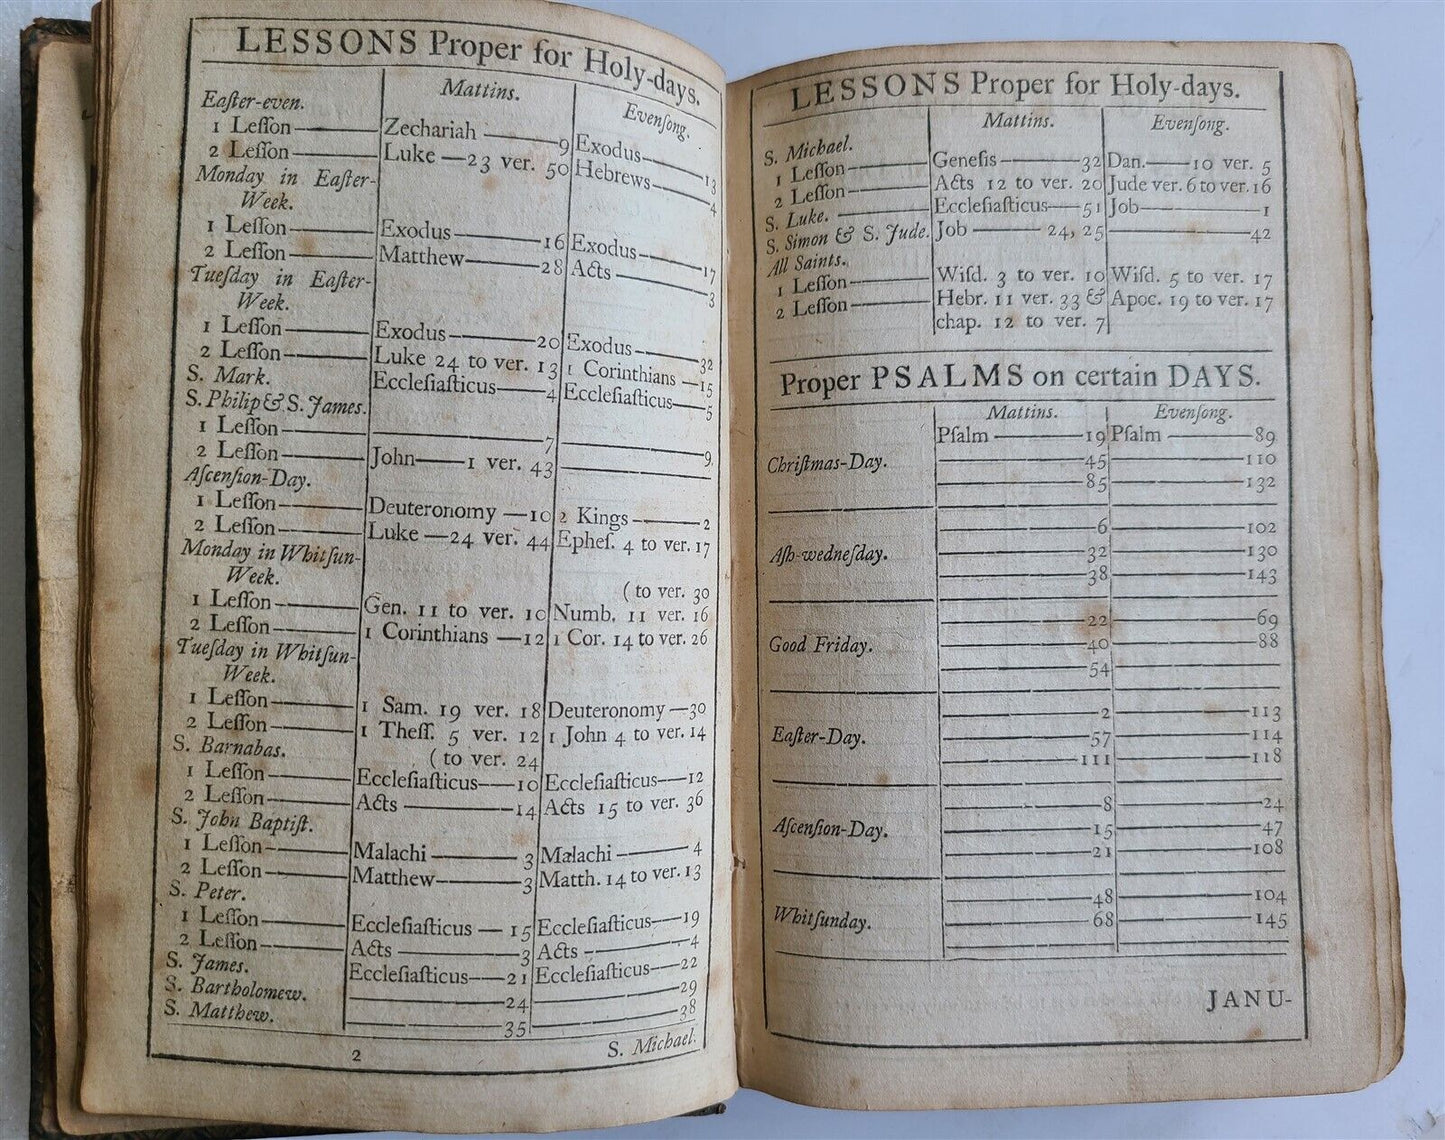 LESSONS Proper for Holy-days.
Mattins. Evenſong.
Eaſter-even.
1 Leſſon Zechariah 9 Exodus 13
2 Leſſon Luke 23 ver. 50 Hebrews 4
Monday in Eaſter-
Week.
1 Leſſon Exodus 16 Exodus 17
2 Leſſon Matthew 28 Acts 3
Tueſday in Eaſter-
Week.
1 Leſſon Exodus 20 Exodus 32
2 Leſſon Luke 24 to ver. 13 1 Corinthians 15
S. Mark. Eccleſiaſticus 4 Eccleſiaſticus 5
S. Philip & S. James.
1 Leſſon 7 9
2 Leſſon John 1 ver. 43
Aſcenſion-Day.
1 Leſſon Deuteronomy 10 2 Kings 2
2 Leſſon Luke 24 ver. 44 Epheſ. 4 to ver. 17
Monday in Whitſun-
Week. ( to ver. 30
1 Leſſon Gen. 11 to ver. 10 Numb. 11 ver. 16
2 Leſſon 1 Corinthians 12 1 Cor. 14 to ver. 26
Tueſday in Whitſun-
Week.
1 Leſſon 1 Sam. 19 ver. 18 Deuteronomy 30
2 Leſſon 1 Theſſ. 5 ver. 12 1 John 4 to ver. 14
S. Barnabas. ( to ver. 24
1 Leſſon Eccleſiaſticus 10 Eccleſiaſticus 12
2 Leſſon Acts 14 Acts 15 to ver. 36
S. John Baptiſt.
1 Leſſon Malachi 3 Malachi 4
2 Leſſon Matthew 3 Matth. 14 to ver. 13
S. Peter.
1 Leſſon Eccleſiaſticus 15 Eccleſiaſticus 19
2 Leſſon Acts 3 Acts 4
S. James. Eccleſiaſticus 21 Eccleſiaſticus 22
S. Bartholomew. 24 29
S. Matthew. 35 38
2 S. Michael.
LESSONS Proper for Holy-days.
Mattins. Evenſong.
S. Michael.
1 Leſſon Geneſis 32 Dan. 10 ver. 5
2 Leſſon Acts 12 to ver. 20 Jude ver. 6 to ver. 16
S. Luke. Eccleſiaſticus 51 Job 1
S. Simon & S. Jude. Job 24, 25 42
All Saints.
1 Leſſon Wiſd. 3 to ver. 10 Wiſd. 5 to ver. 17
2 Leſſon Hebr. 11 ver. 33 & Apoc. 19 to ver. 17
chap. 12 to ver. 7
Proper PSALMS on certain DAYS.
Mattins. Evenſong.
Pſalm 19 Pſalm 89
Chriſtmas-Day. 45 110
85 132
6 102
Aſh-wedneſday. 32 130
38 143
22 69
Good Friday. 40 88
54
2 113
Eaſter-Day. 57 114
111 118
8 24
Aſcenſion-Day. 15 47
21 108
48 104
Whitſunday. 68 145
JANU-